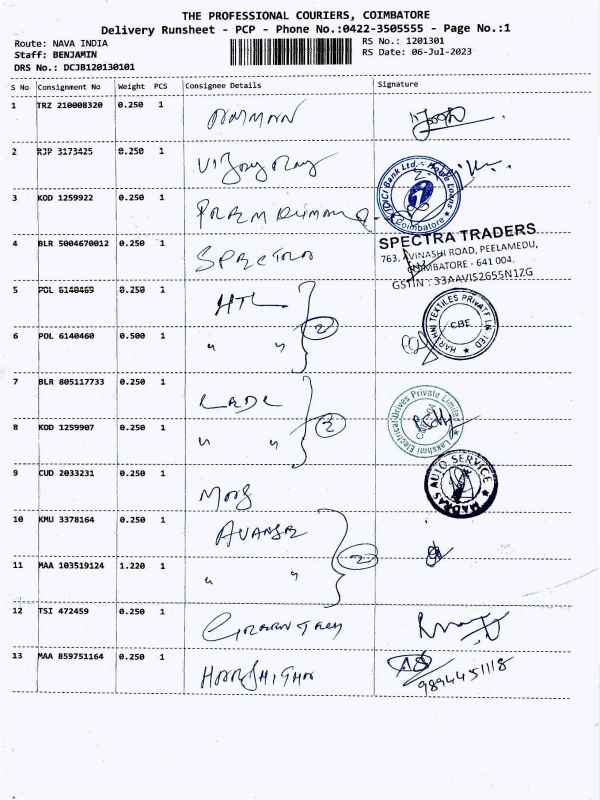 THE PROFESSIONAL COURIERS, COIMBATORE
Delivery Runsheet - PCP - Phone No.:0422-3505555 - Page No.:1
Route: NAVA INDIA
RS No.: 1201301
Staff: BENJAMIN
RS Date: 06-Jul-2023
DRS No.: DCJB120130101
S No Consignment No Weight PCS Consignee Details Signature
1 TRZ 210008320 0.250 1
2 RJP 3173425 0.250 1
ICICI Bank Ltd. - Home Loans
Coimbatore
3 KOD 1259922 0.250 1
SPECTRA TRADERS
763, AVINASHI ROAD, PEELAMEDU,
COIMBATORE - 641 004.
GSTIN : 33AAVIS2655N1ZG
4 BLR 5004670012 0.250 1 SPECTRA
5 POL 6140469 0.250 1 HTL 2
HARIHNI TEXTILES PRIVATE LIMITED
CBE
6 POL 6140460 0.500 1 " "
7 BLR 805117733 0.250 1 2
Lakshmi Electrical Drives Private Limited
8 KOD 1259907 0.250 1 " "
MADRAS AUTO SERVICE
9 CUD 2033231 0.250 1
10 KMU 3378164 0.250 1 2
11 MAA 103519124 1.220 1 " "
12 TSI 472459 0.250 1
13 MAA 859751164 0.250 1
9894451118